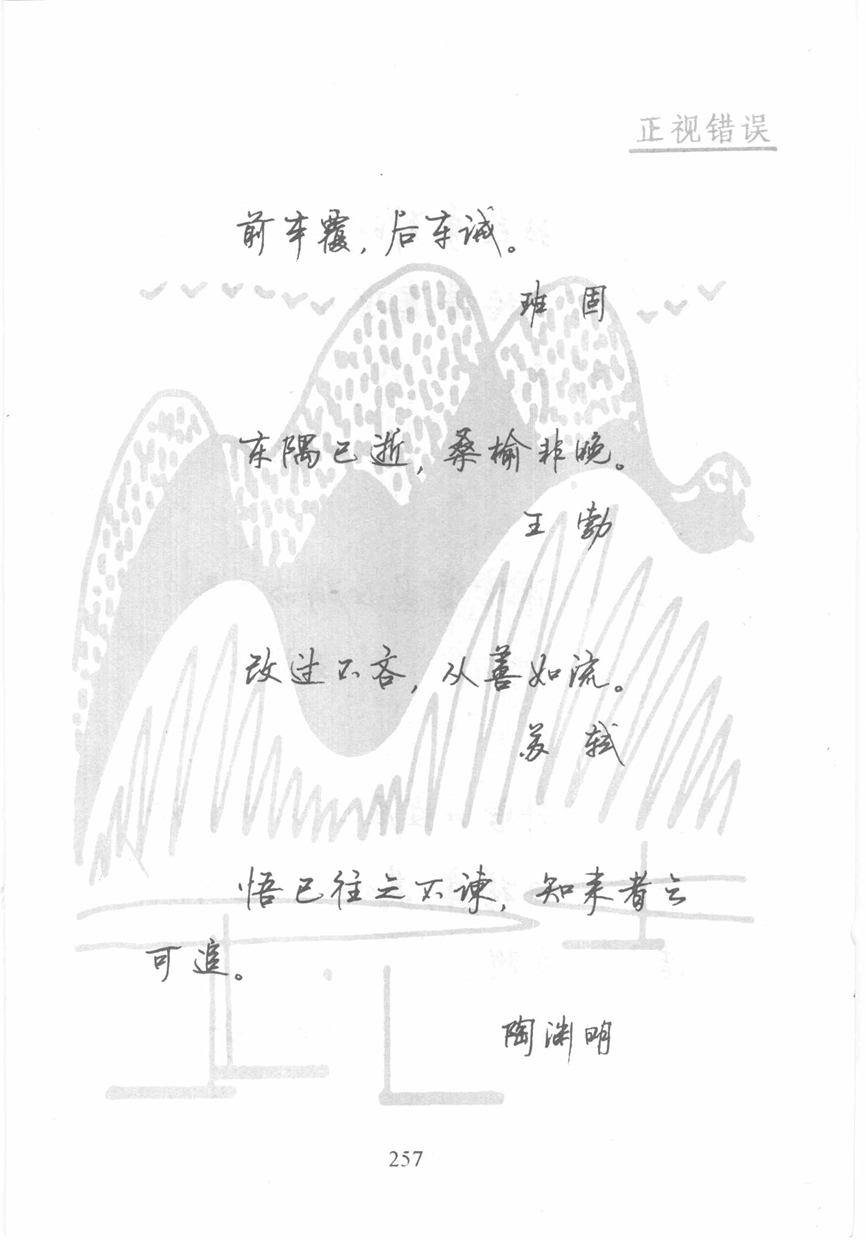 正视错误
前车覆，后车诫。
班固
东隅已逝，桑榆非晚。
王勃
改过不吝，从善如流。
苏轼
悟已往之不谏，知来者之
可追。
陶渊明
257